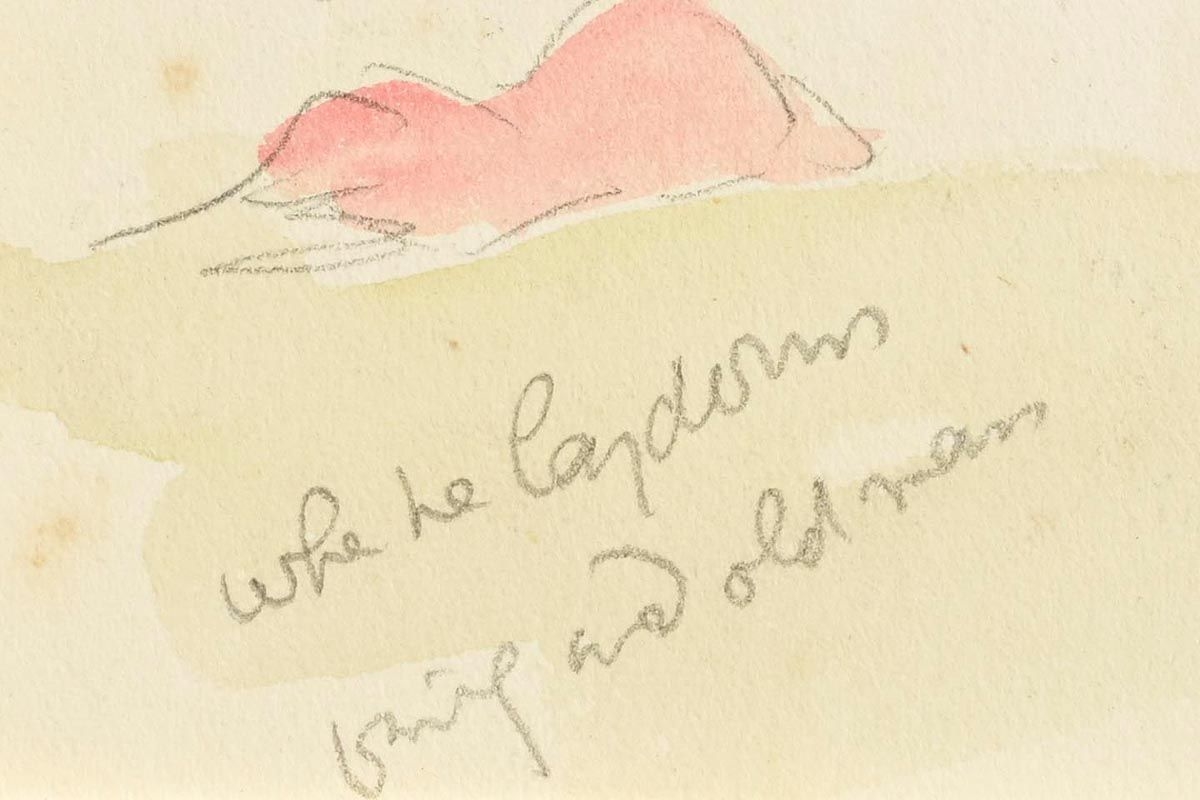 whe he lay down
and old man